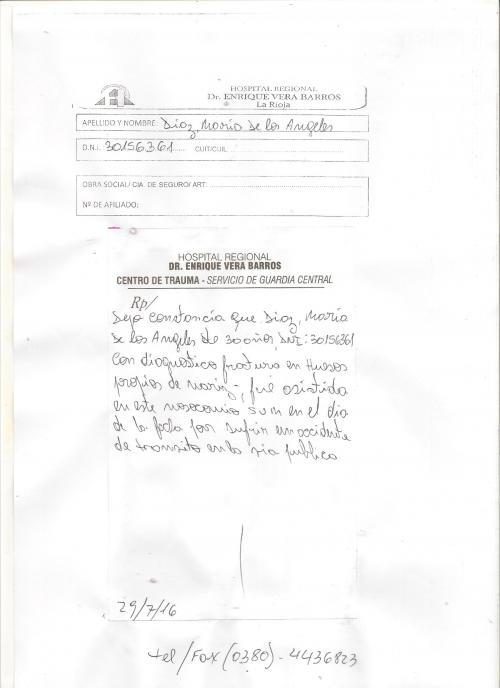 HOSPITAL REGIONAL
Dr. ENRIQUE VERA BARROS
La Rioja
APELLIDO Y NOMBRE: Diaz, María de los Angeles
D.N.I. 30156361 CUIT/CUIL:
OBRA SOCIAL/ CIA. DE SEGURO/ ART:
Nº DE AFILIADO:
HOSPITAL REGIONAL
DR. ENRIQUE VERA BARROS
CENTRO DE TRAUMA - SERVICIO DE GUARDIA CENTRAL
Rp/
Dejo Constancia que Diaz, María
de los Angeles de 30 años, DNI: 30156361
Con diagnostico fractura en Huesos
propios de nariz, fué asistida
en este nosocomio en el dia
de la fecha por sufrir un accidente
de transito en la via publica
29/7/16
tel/Fax (0380) - 4436823